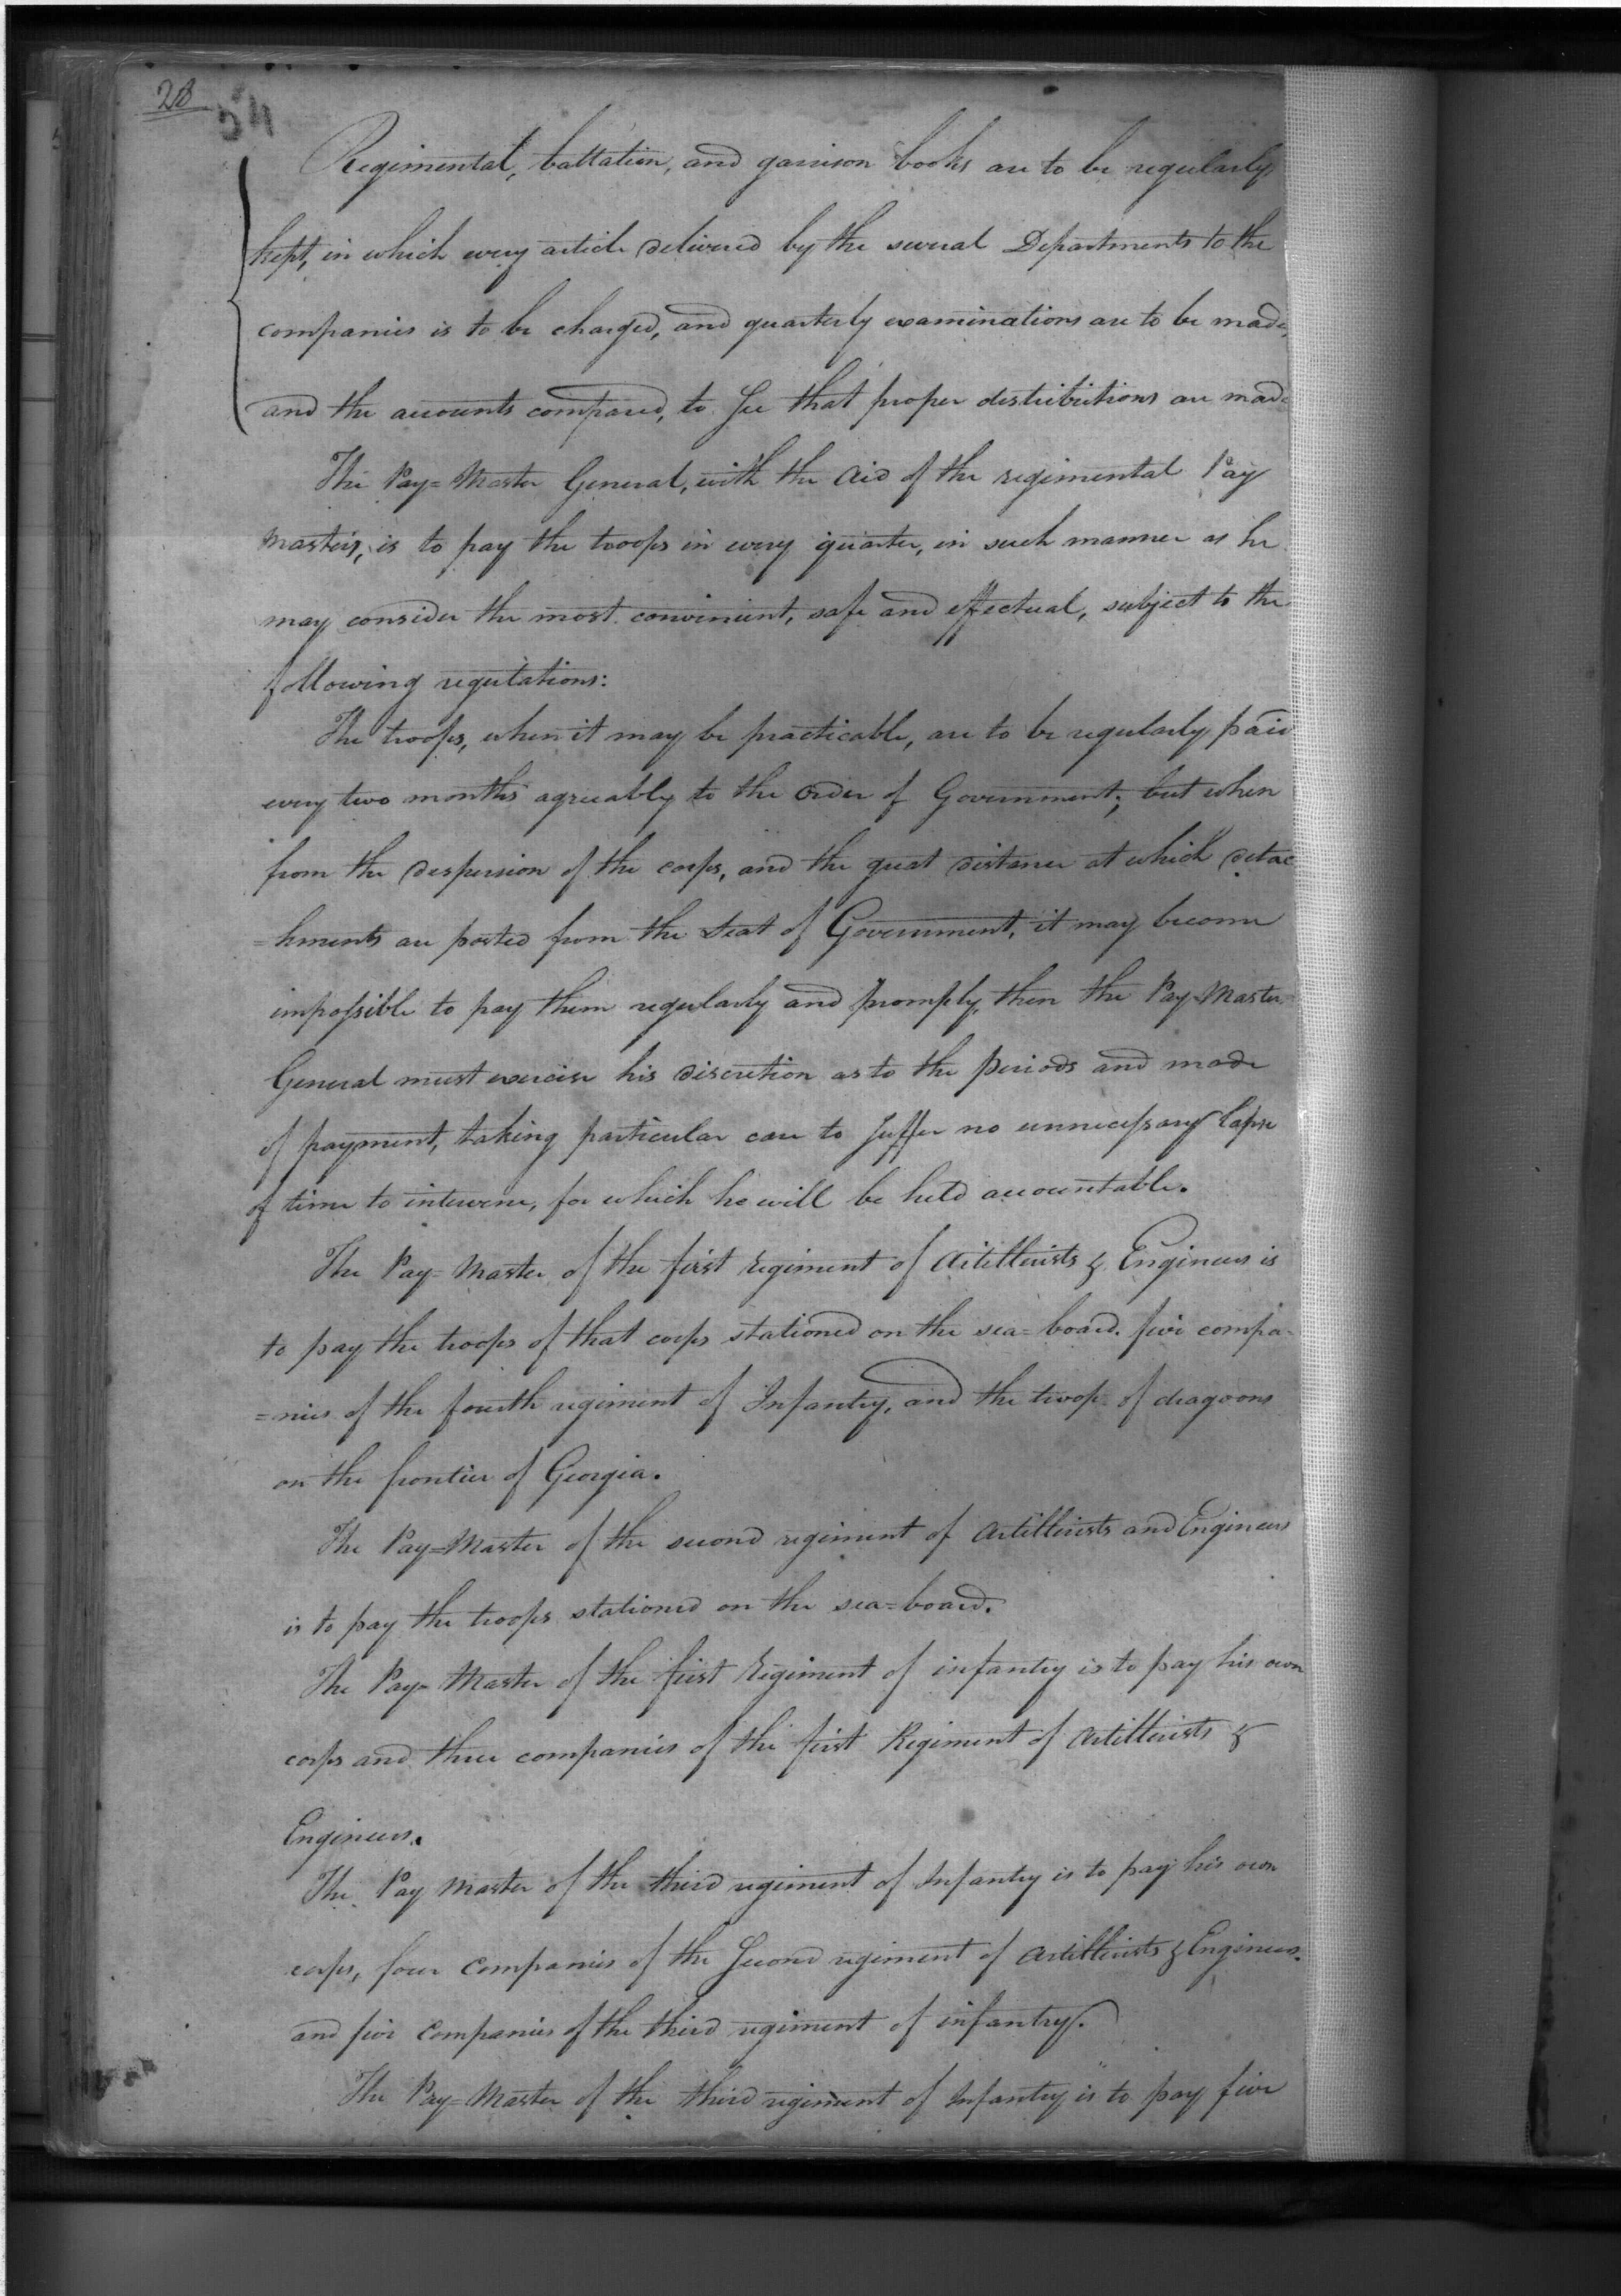 28
54
Regimental, battalion, and garrison books are to be regularly
kept, in which every article delivered by the several Departments to the
companies is to be charged, and quarterly examinations are to be made,
and the accounts compared, to See that proper distributions are made
The Pay=Master General, with the aid of the regimental Pay
masters, is to pay the troops in every quarter, in such manner as he
may consider the most convenient, safe and effectual, subject to the
following regulations:
The troops, when it may be practicable, are to be regularly paid
every two months agreeably to the order of Government; but when
from the dispersion of the corps, and the great distance at which detac
=hments are posted from the Seat of Government, it may become
impossible to pay them regularly and promply, then the Pay-Master
General must exercise his discretion as to the periods and mode
of payment, taking particular care to Suffer no unnecessary lapse
of time to intervene, for which he will be held accountable.
The Pay-Master of the first regiment of Artillerists & Engineers is
to pay the troops of that corps stationed on the sea=board. five compa-
=nies of the fourth regiment of Infantry, and the troop of dragoons
on the frontier of Georgia.
The Pay=Master of the second regiment of Artillerists and Engineers
is to pay the troops stationed on the sea=board.
The Pay-Master of the first Regiment of infantry is to pay his own
corps and three companies of the first Regiment of Artillerists &
Engineers.
The Pay Master of the third regiment of Infantry is to pay his own
corps, four Companies of the Second regiment of Artillerists & Engineers.
and five Companies of the third regiment of infantry.
The Pay=Master of the third regiment of Infantry is to pay five